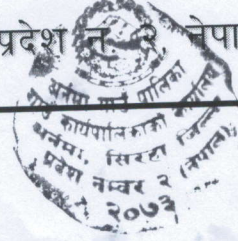 प्रदेश नं. २, नेपा
अर्नमा गाउँ पालिका
गाउँ कार्यपालिकाको कार्यालय
अर्नमा, सिरहा जिल्ला
प्रदेश नम्बर २ (नेपाल)
२०७३